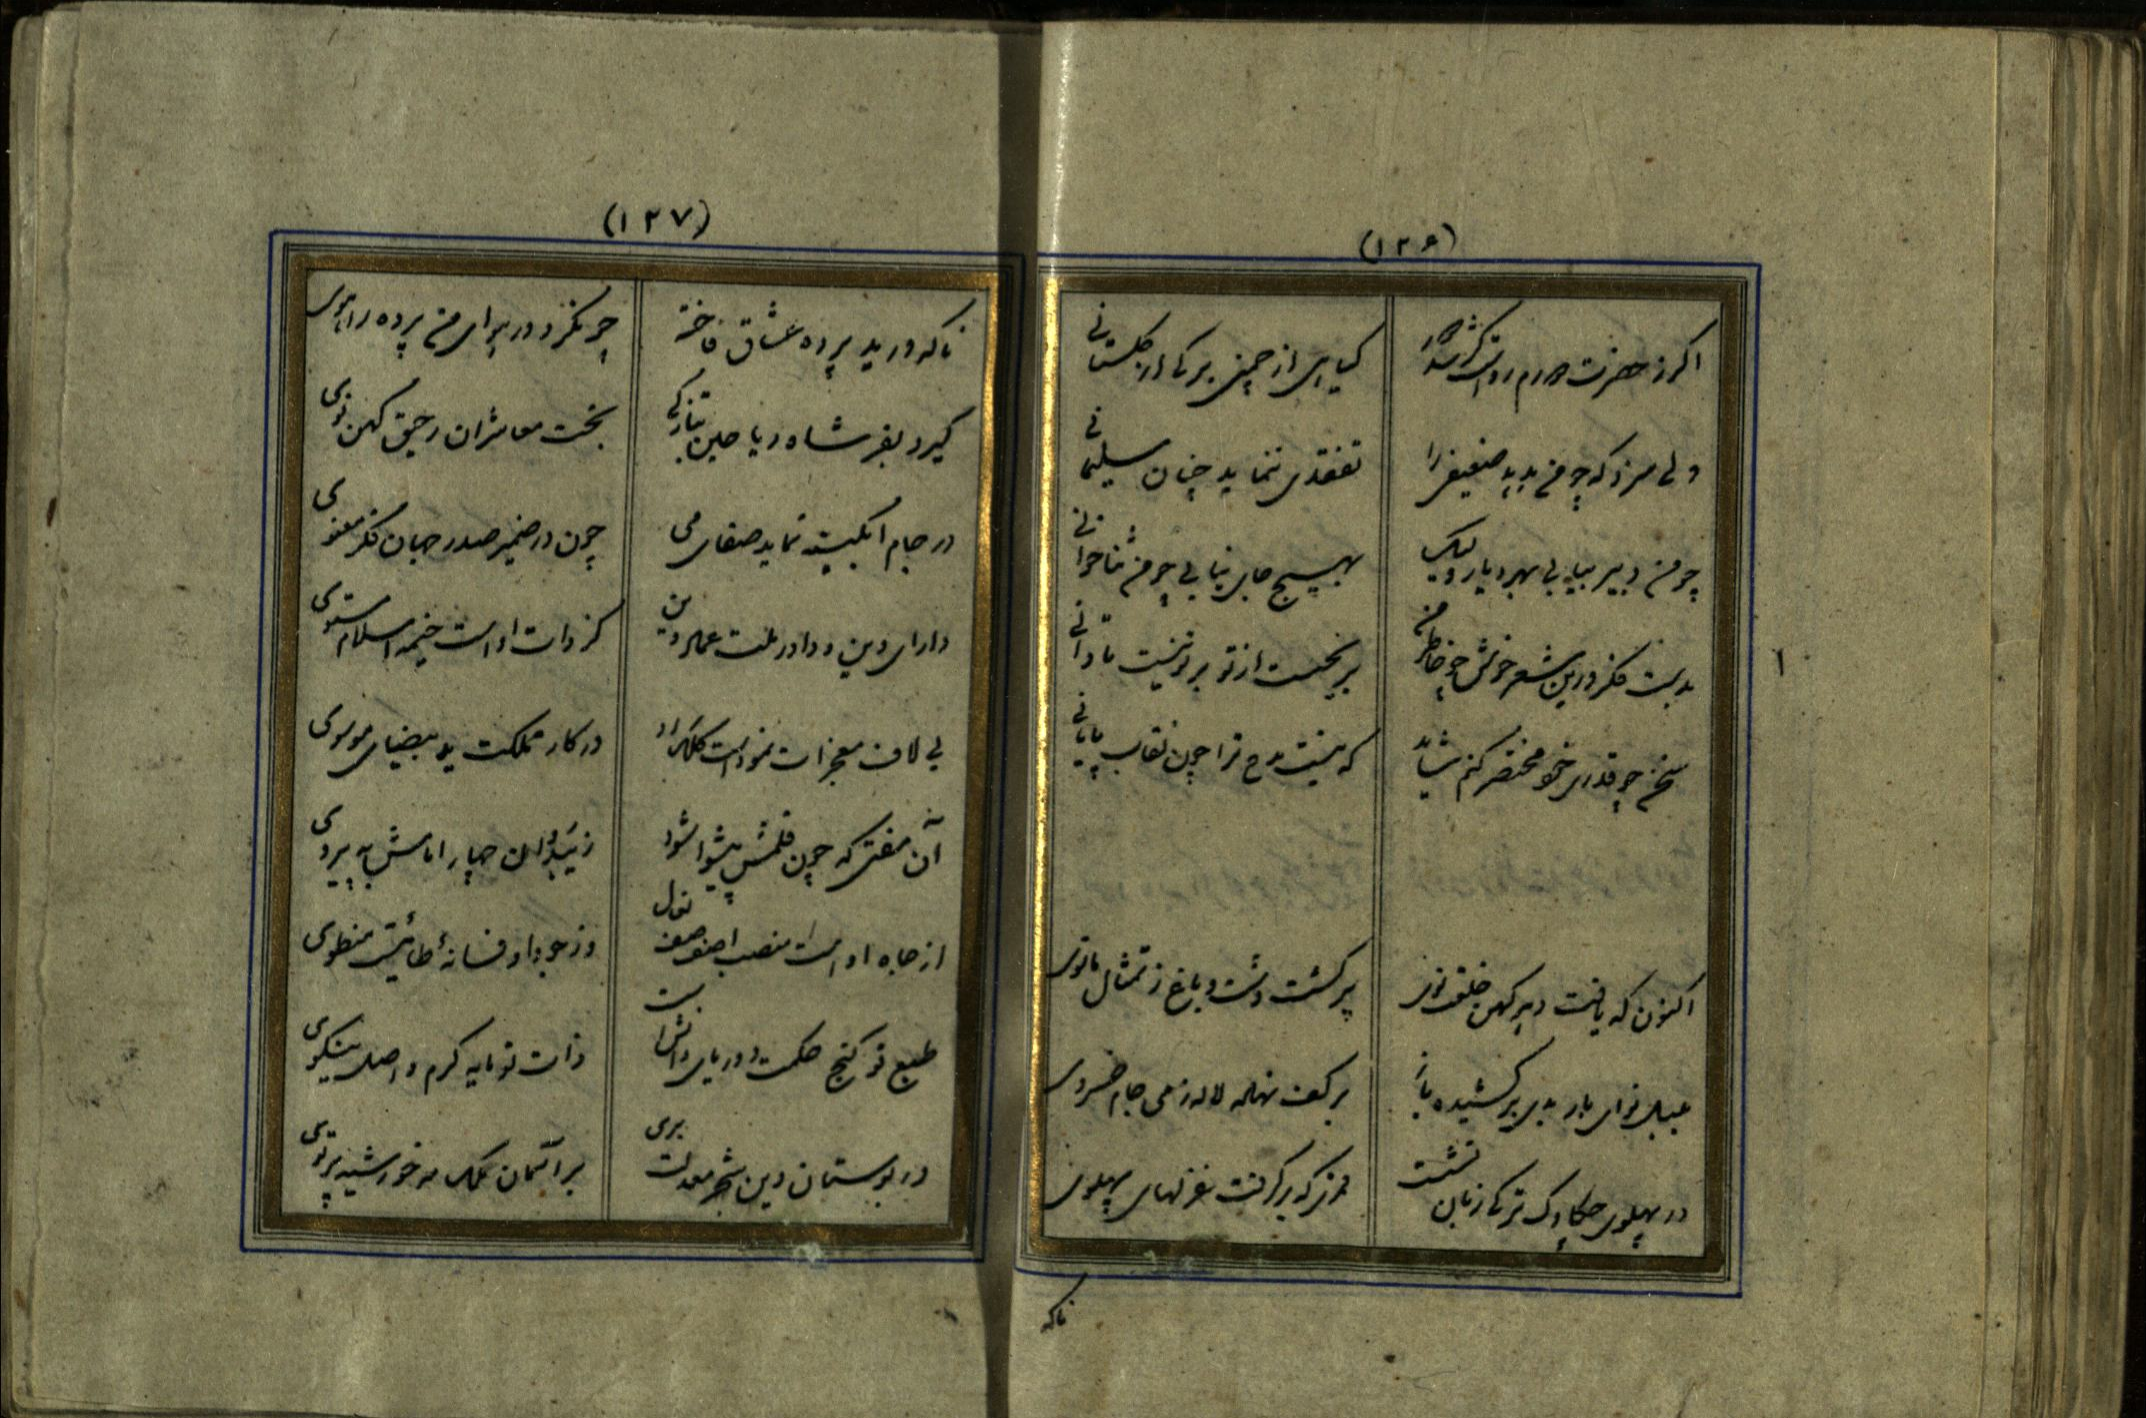 (۱۲۶)
اکر ز حضرت
کیاهی از چمنی برکی از کلستانی
ولی سزد که چو من بدید ضعیفی را
تفقدی ننماید چنان سلیمانی
چو من دبیر بیابی بهر دیار ولیک
بهیچ جای نیابی چو من ثناخوانی
بدیت فکر درین شعر خوش چو خاطر من
بریخت از تو بر تو نیست تاوانی
سخن چو قدر مختصر کنم شاید
که نیست مدح ترا چون نقاب پایانی
اکنون که یافت دهر کهن خلعت نوی
پر کشت دشت و باغ ز تمثال مانوی
بلبل نوای باربدی برکشیده باز
بر کف نهاده لاله ز می جام خسروی
در پهلوی چکاوک ترکی زبان نشست
مرغی که برگرفت غزلهای پهلوی
ناکه
(۱۲۷)
ناکه درید پرده عشاق فاخته
چون بکزرد در هوای من پرده راهوی
کیرد بفر شاه ریاحین بتازکی
بخت معاشران رحیق کهن نوی
در جام آبکینه نماید صفای می
چون در ضمیر صدر جهان فکر معنوی
دارای دین و داور ملت عماد دین
کز ذات اوست خیمه اسلام مستوی
بی لاف معجزات نمودست کلک او
در کار مملکت ید بیضای موسوی
آن مفتی که چون قلمش پیشوا شود
زیبد چهار امامش به پیروی
از جاه اوست منصب آصف صف نعال
وز جود او فسانه طائیست منطوی
طبع تو کنج حکمت و دریای دانش است
ذات تو مایه کرم و اصل نیکوی
در بوستان دین شجر معدلت بری
بر آسمان ملک مه خورشید پرتوی